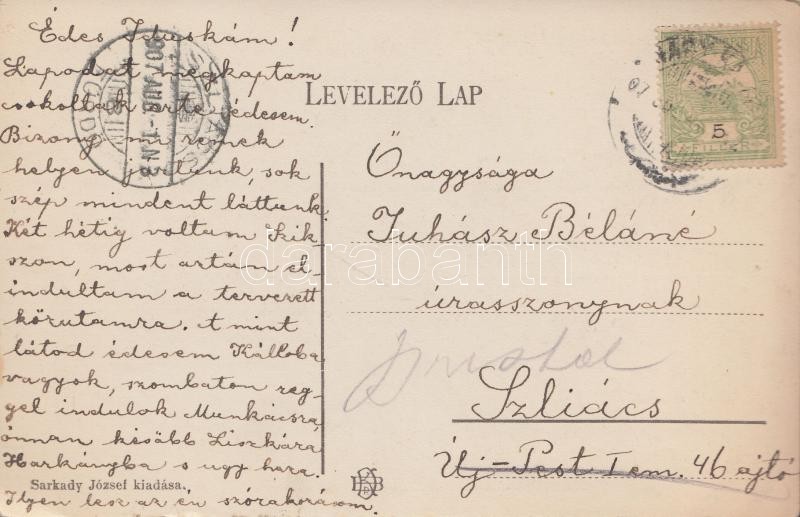 Édes Iduskám!
Lapodat megkaptam
csókollak érte édesem.
Bizony mi remek
helyen jártunk, sok
szép mindent láttunk.
Két hétig voltam Szik-
szon, most aztán el-
indultam a tervezett
körutamra. A mint
látod édesem Kállóba
vagyok, szombaton reg-
gel indulok Munkácsra,
onnan később Liszkára
Harkányba s ugy haza.
Ilyen lesz az én szórakozásom.
Sarkady József kiadása.
LEVELEZŐ LAP
5
FILLÉR
Őnagysága
Juhász Béláné
úrasszonynak
Szliács
Uj-Pest I em. 46 ajtó
darabanth